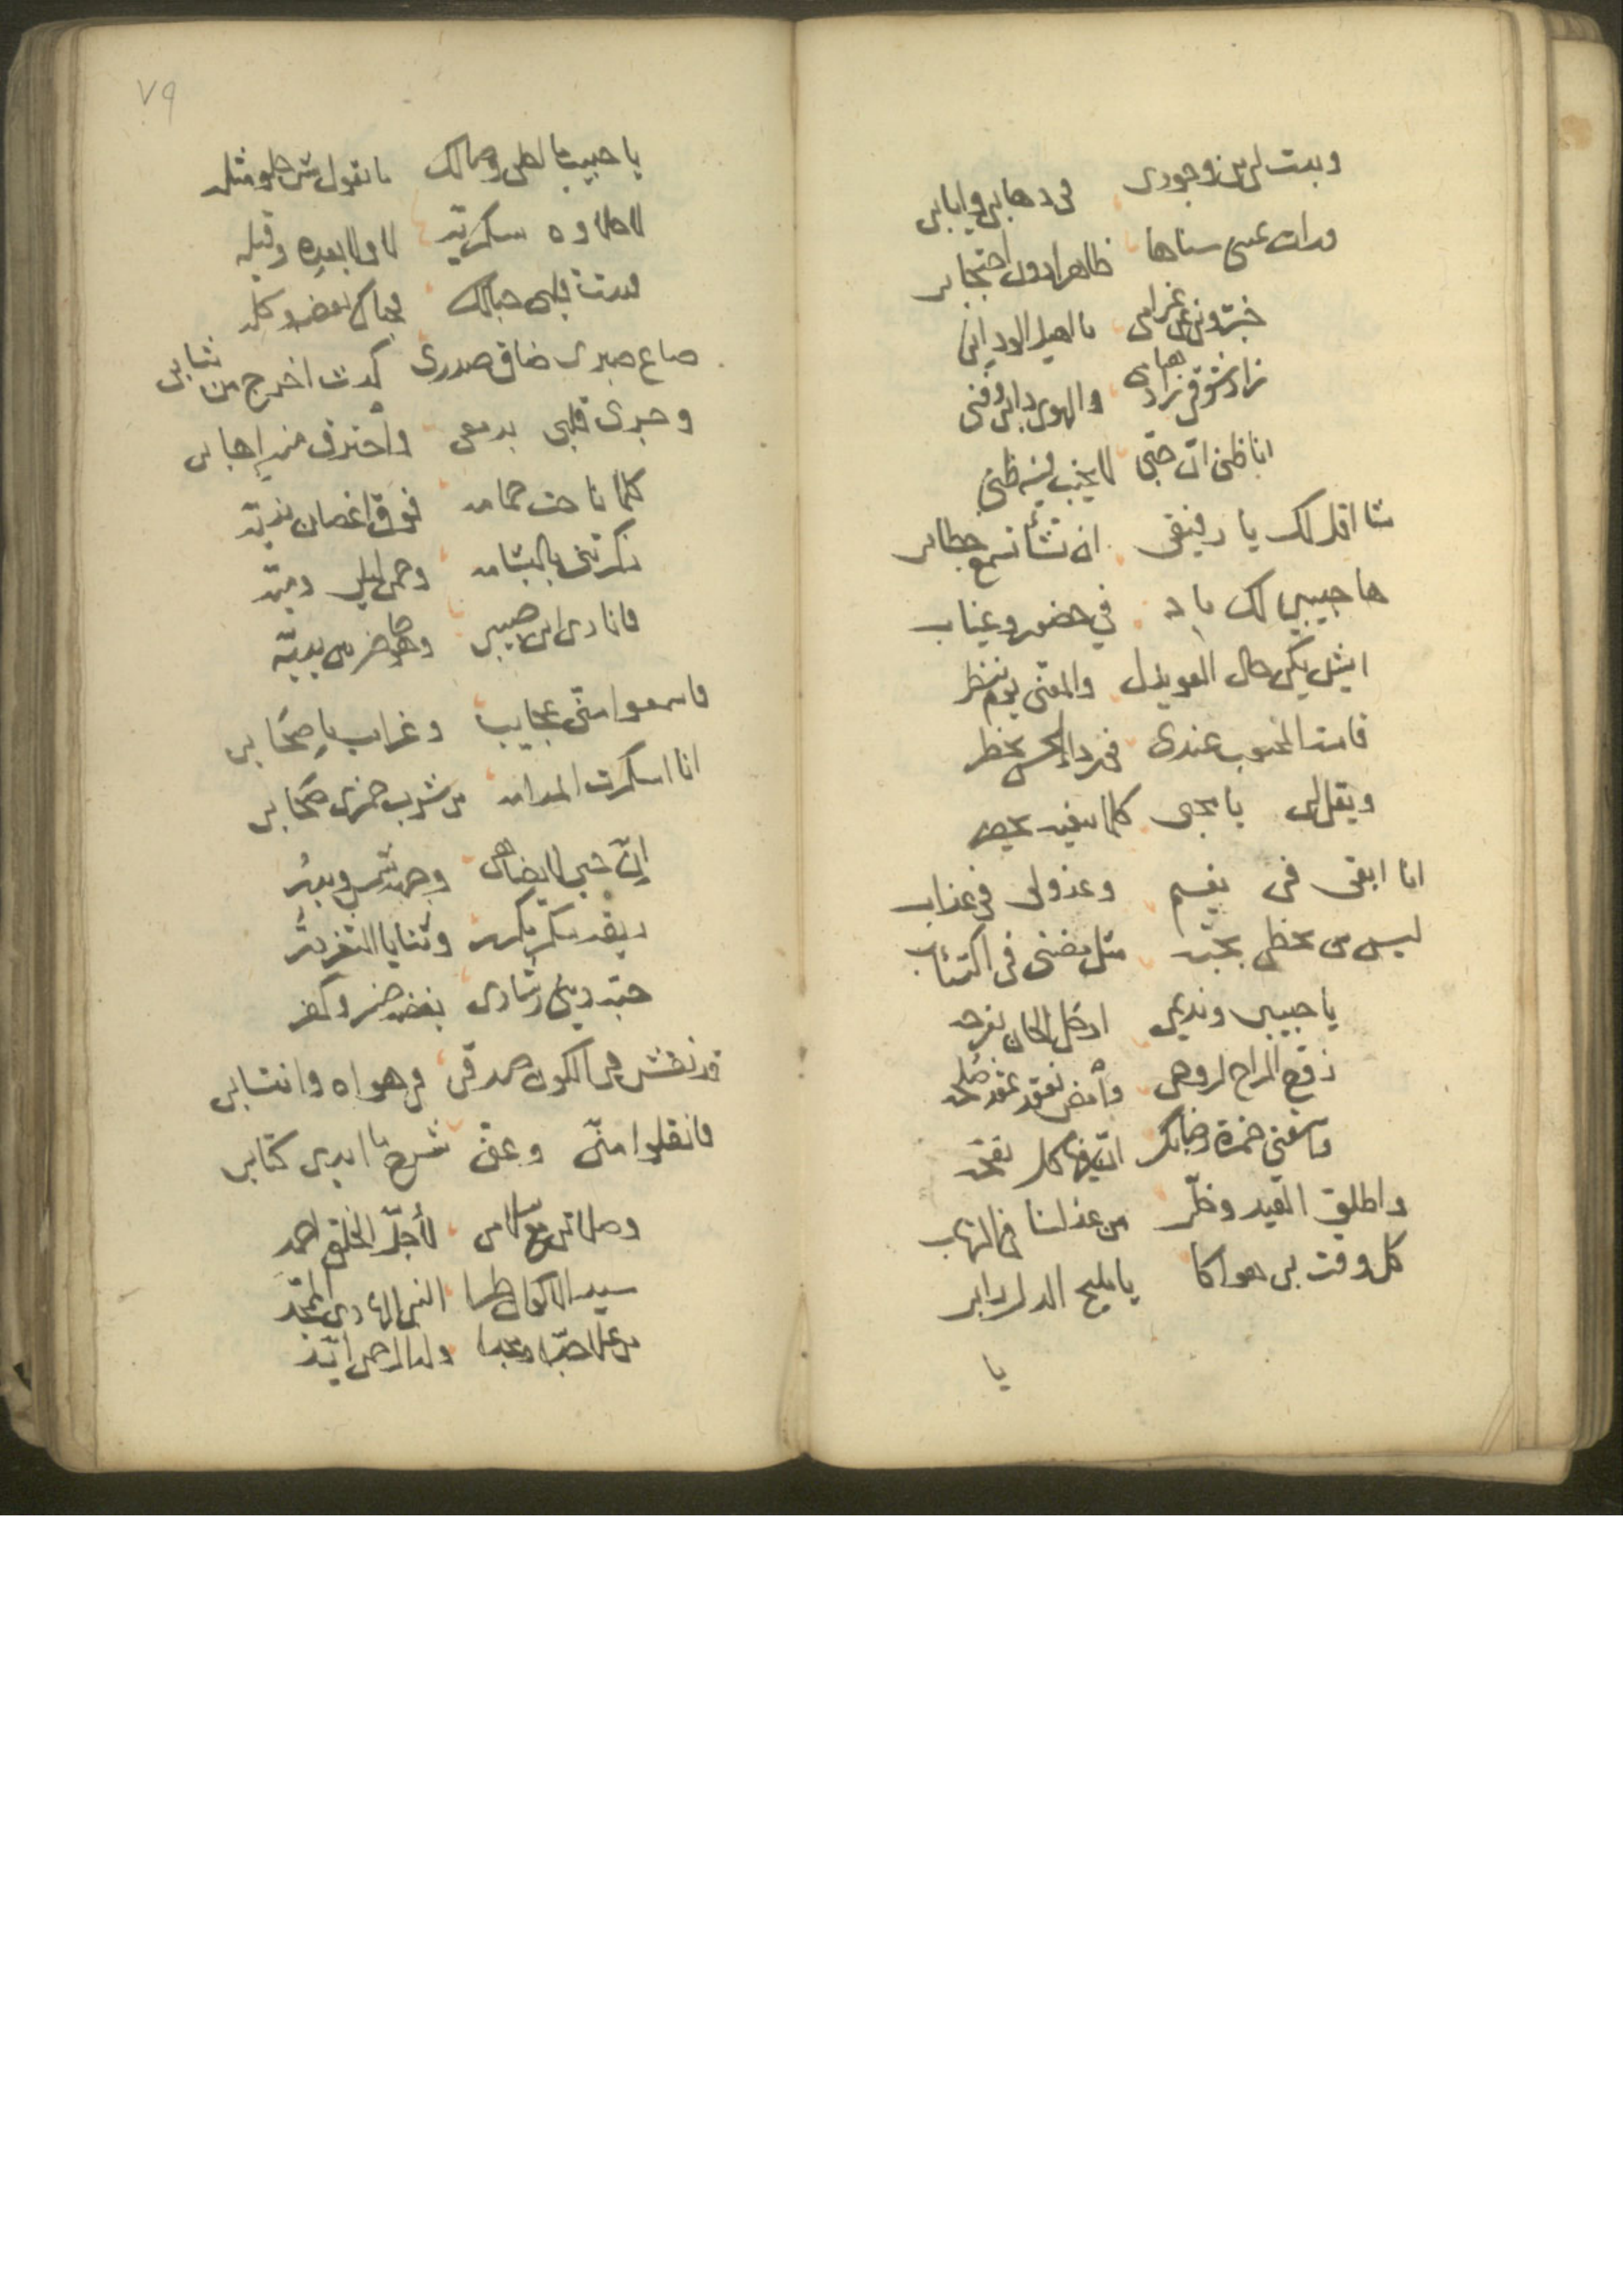 وبدت لي من وجودي في ذهابي وايابي
ورات عيني سناها ظاهرا دون احتجابي
خبرّوني عن غرامي يا اهيل الود اني
زاد شوقي زاد هيامي والهوى دابي وفني
انا ظني انّ حبّي لا يخيب فيه ظني
شا اقل لك يا رفيقي ان تشأ تسمع خطابي
ها حبيبي لك باد في حضور وغياب
ايش يكن حال العويذل والمعنى يوم ينظر
قامت المحبوب عندي في
ويقل لي يا محبي كلما
انا ابقى في نعيم وعذولي في عذاب
ليس من يحظى بحبّه مثل مضنى في اكتئاب
يا حبيبي ونديمي ادخل الحان بفرحه
زفّ الراح لروحي وأمض نعقد عقد صلحه
واسقني خمرة رضابك
واطلق القيد وخلّي من عذلنا في التهاب
كل وقت بي هواكا يا مليح الدل رابي
يا
٧٩
يا حبيب ما احلى وصالك ما نقول شي حلو مثله
لا حلاوه سكريّه لا ولا بعده وقبله
قيدت قلبي حبالك بعضه وكله
ضاع صبري ضاق صدري كدت اخرج من ثيابي
وجرى قلبي بدمعي وأحترق منه إهابي
كلما ناحت حمامه فوق اغصان نديّه
ذكرتني بالبشامه وحمى ليلى وميّه
فانادي اين حبيبي وهو حاضر بين يديّه
فاسمعوا منّي عجايب وغرايب يا صحابي
انا اسكرت المدامه من شرب خمري صحابي
إنّ حبي لا يضاهى وجهه شمس وبدر
ريقه سكر مكرر وثنايا الثغر درّ
حبّه ديني رشادي بغضه خسر وكفر
قد نقش في الكون صدقي في هواه وانتسابي
فانقلوا منّي وعنّي شرح ما ابدى كتابي
وصلاتي مع سلامي لأجلّ الخلق احمد
سيد الاكوان طرا النبي الهادي الممجّد